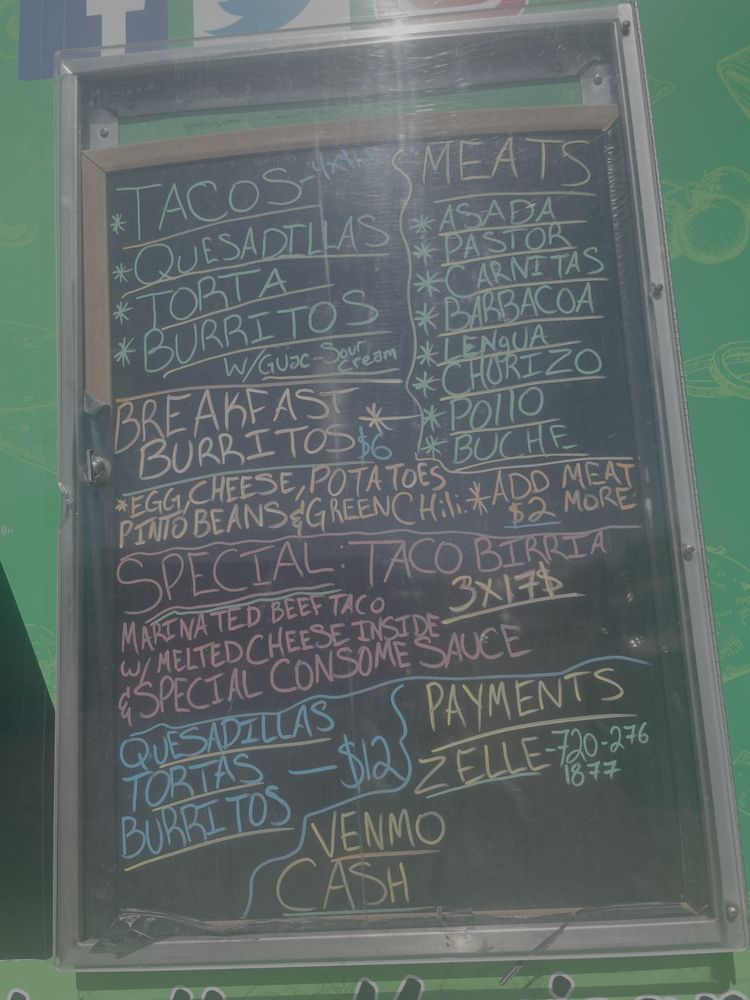 TACOS-
* QUESADILLAS
* TORTA
* BURRITOS
W/Guac-Sour
cream
MEATS
* ASADA
* PASTOR
* CARNITAS
* BARBACOA
* LENGUA
* CHORIZO
* POllO
* BUCHE
BREAKFAST
BURRITOS $6
*EGG, CHEESE, POTATOES
PINTO BEANS & GREEN CHili.
* ADD MEAT
$2 MORE
SPECIAL: TACO BIRRIA
3X17$
MARINATED BEEF TACO
W/ MELTED CHEESE INSIDE
& SPECIAL CONSOME SAUCE
QUESADILLAS
TORTAS — $12
BURRITOS
PAYMENTS
ZELLE-720-276
1877
VENMO
CASH